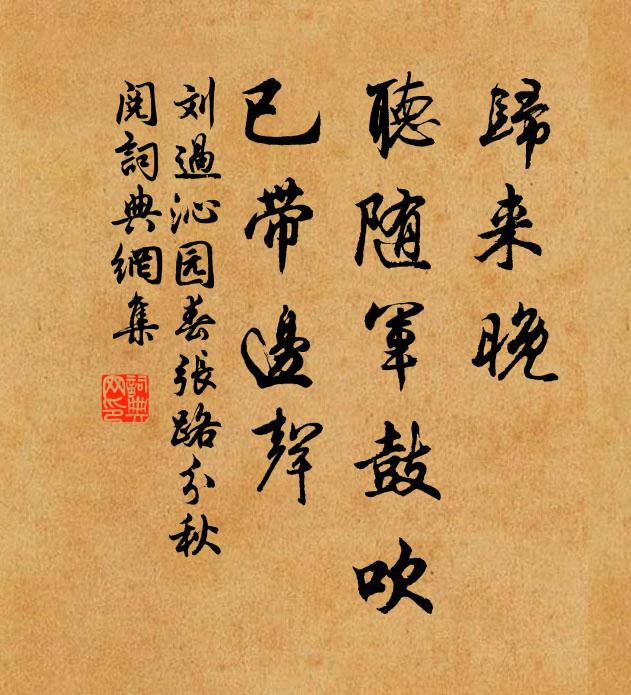 歸来晚
聽随軍鼓吹
已帶邊聲
刘過沁园春張路分秋
閲詞典網集
詞典网印